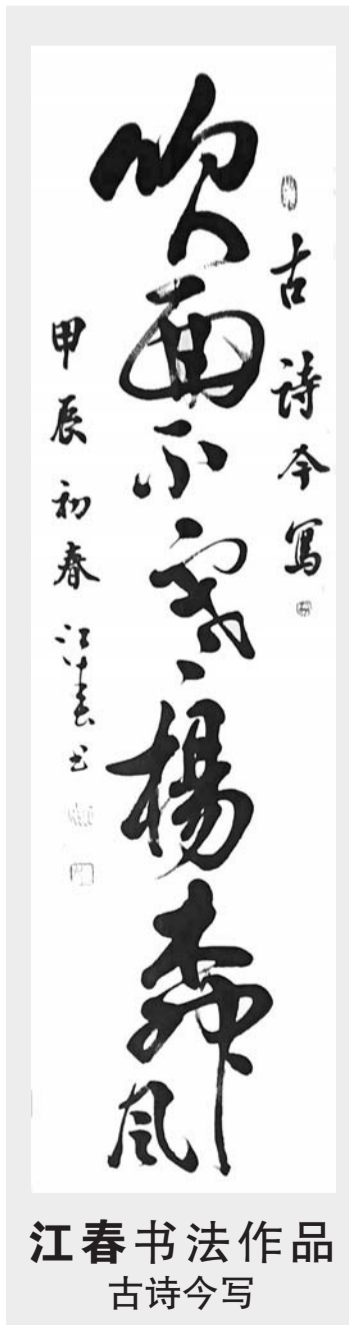 古詩今寫
吹面不寒楊柳風
甲辰初春 江春书
江春书法作品
古诗今写